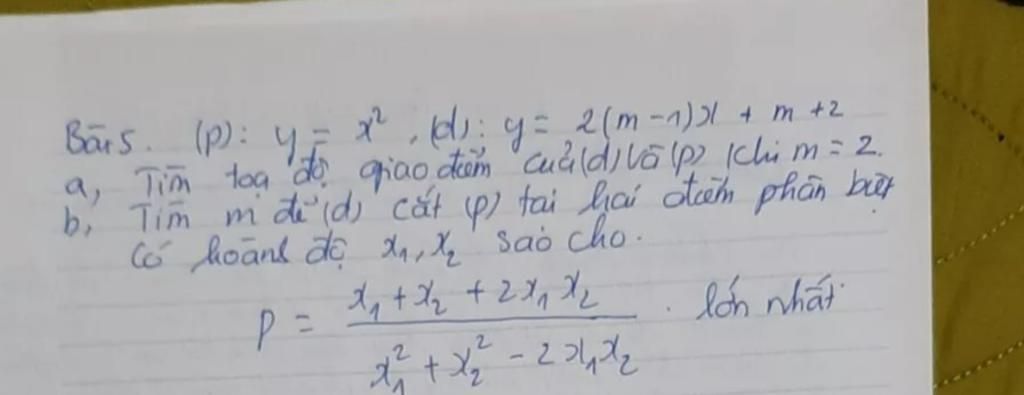 Bài 5. (P): y = x², (d): y = 2(m-1)x + m + 2
a, Tìm toạ độ giao điểm của (d) và (P) khi m = 2.
b, Tìm m để (d) cắt (P) tại hai điểm phân biệt
có hoành độ x₁, x₂ sao cho.
P = (x₁ + x₂ + 2x₁x₂) / (x₁² + x₂² - 2x₁x₂) . lớn nhất.